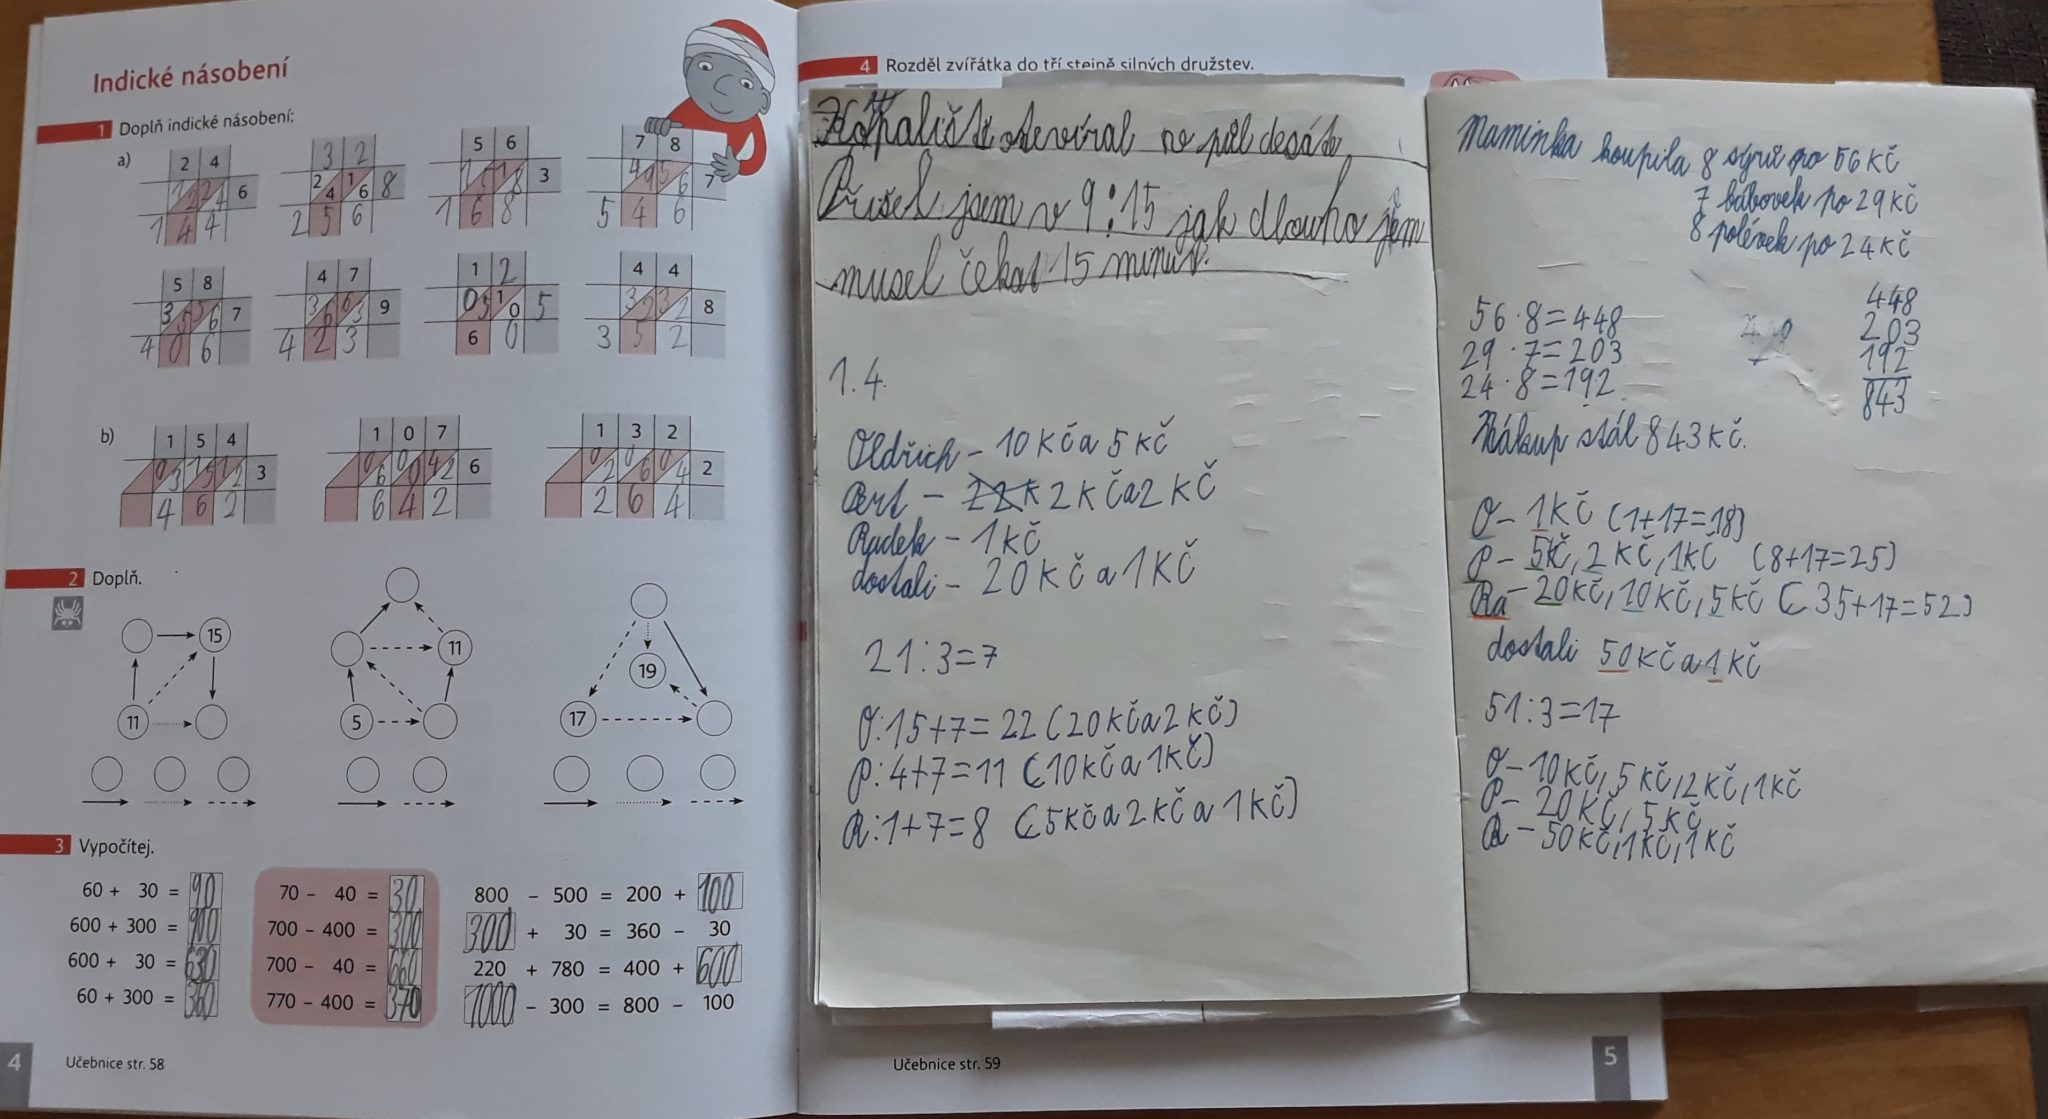 Indické násobení
1 Doplň indické násobení:
a)
2 4
1 2 2 4 6
1 4 4
3 2
2 4 1 6 8
2 5 6
5 6
1 5 1 8 3
1 6 8
7 8
4 9 5 6 7
5 4 6
5 8
3 5 5 6 7
4 0 6
4 7
3 6 6 3 9
4 2 3
1 2
0 5 1 0 5
6 0
4 4
3 2 3 2 8
3 5 2
b)
1 5 4
0 3 1 5 1 2 3
4 6 2
1 0 7
0 6 0 0 4 2 6
6 4 2
1 3 2
0 2 0 6 0 4 2
2 6 4
2 Doplň.
15
11
11
5
19
17
3 Vypočítej.
60 + 30 = 90
600 + 300 = 900
600 + 30 = 630
60 + 300 = 360
70 - 40 = 30
700 - 400 = 300
700 - 40 = 660
770 - 400 = 370
800 - 500 = 200 + 100
300 + 30 = 360 - 30
220 + 780 = 400 + 600
1000 - 300 = 800 - 100
4 Učebnice str. 58
4 Rozděl zvířátka do tří stejně silných družstev.
otevíral v půl desát
Přišel jsem v 9:15 jak dlouho jsem
musel čekat 15 minut.
1.4.
Oldřich – 10 Kč a 5 Kč
– 2 Kč a 2 Kč
Radek – 1 Kč
dostali – 20 Kč a 1 Kč
21:3=7
O: 15+7= 22 (20 Kč a 2 Kč)
P: 4+7=11 (10 Kč a 1 Kč)
R: 1+7=8 (5 Kč a 2 Kč a 1 Kč)
Učebnice str. 59
Maminka koupila 8 sýrů po 56 Kč
7 bábovek po 29 Kč
8 polévek po 24 Kč
56 · 8 = 448
29 · 7 = 203
24 · 8 = 192
448
203
192
843
Nákup stál 843 Kč.
O – 1 Kč (1+17=18)
P – 5 Kč, 2 Kč, 1 Kč (8+17=25)
Ra – 20 Kč, 10 Kč, 5 Kč (35+17=52)
dostali 50 Kč a 1 Kč
51:3=17
O – 10 Kč, 5 Kč, 2 Kč, 1 Kč
P – 20 Kč, 5 Kč
R – 50 Kč, 1 Kč, 1 Kč
5